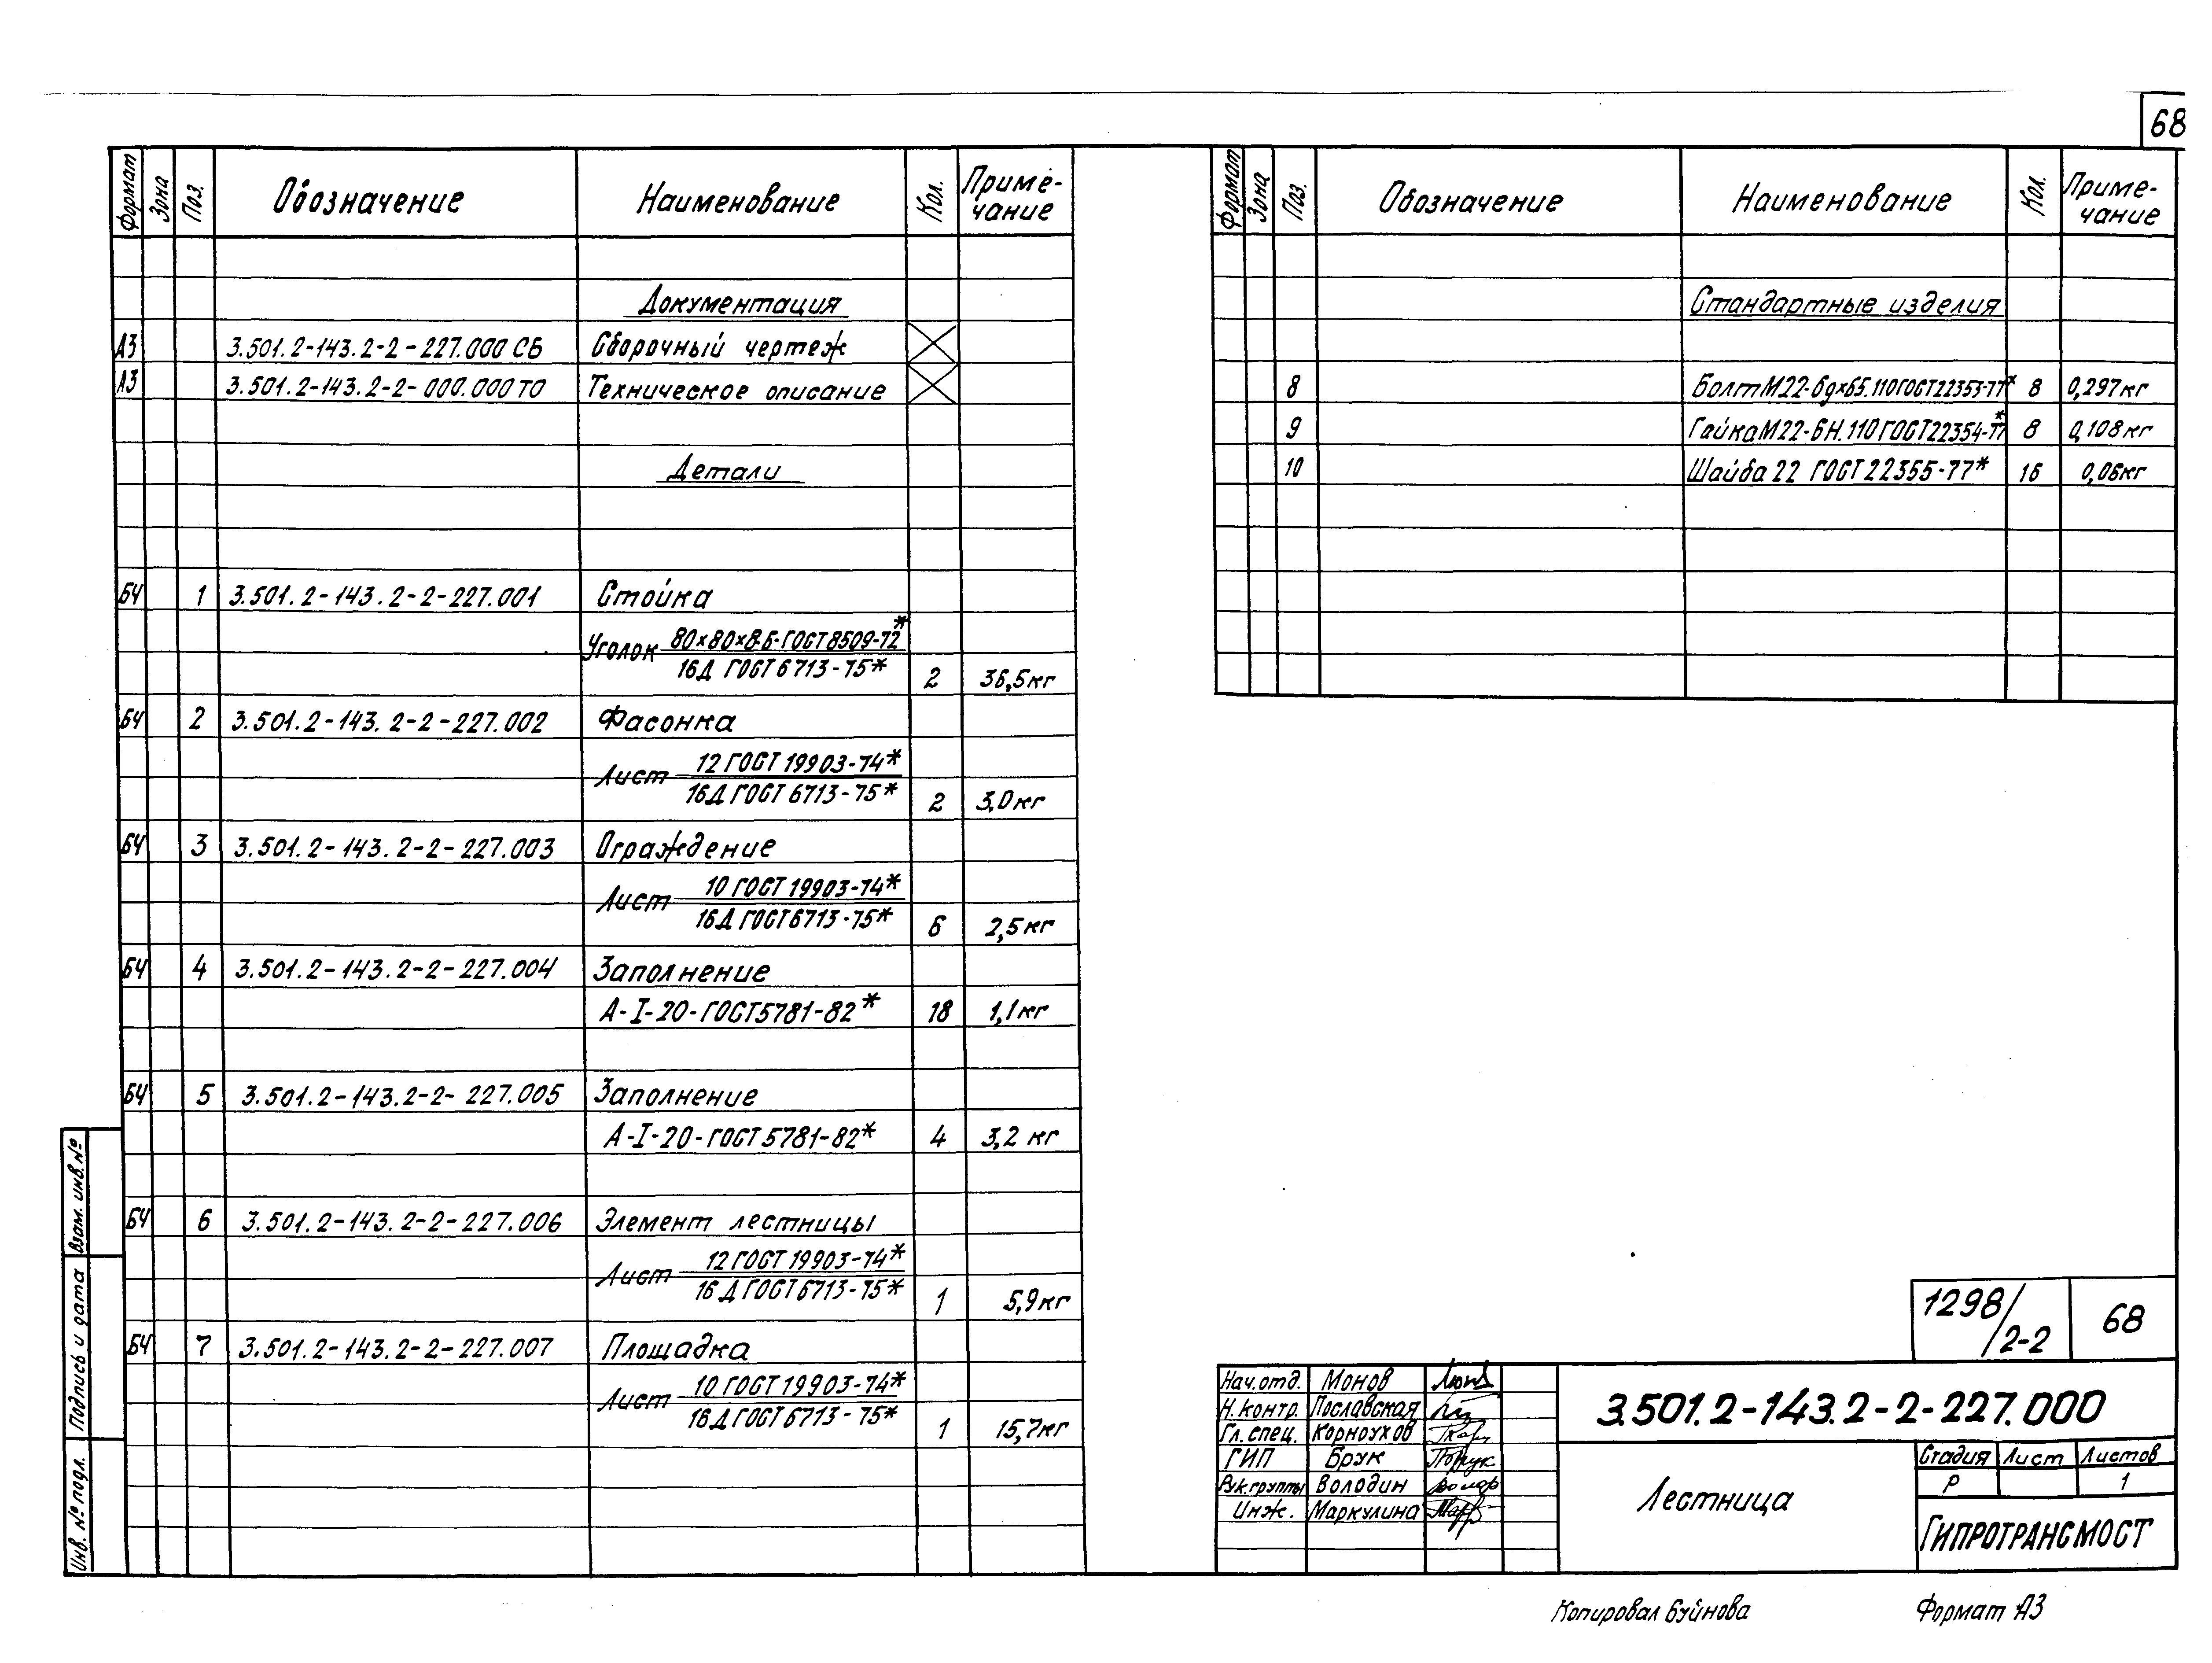 68
Формат Зона Поз. Обозначение Наименование Кол. Приме-
чание
Документация
А3 3.501.2-143.2-2-227.000 СБ Сборочный чертеж
А3 3.501.2-143.2-2-000.000 ТО Техническое описание
Детали
БЧ 1 3.501.2-143.2-2-227.001 Стойка
Уголок 80×80×8-Б-ГОСТ 8509-72*
16Д ГОСТ 6713-75* 2 36,5кг
БЧ 2 3.501.2-143.2-2-227.002 Фасонка
Лист 12 ГОСТ 19903-74*
16Д ГОСТ 6713-75* 2 3,0кг
БЧ 3 3.501.2-143.2-2-227.003 Ограждение
Лист 10 ГОСТ 19903-74*
16Д ГОСТ 6713-75* 6 2,5кг
БЧ 4 3.501.2-143.2-2-227.004 Заполнение
А-I-20-ГОСТ 5781-82* 18 1,1кг
БЧ 5 3.501.2-143.2-2-227.005 Заполнение
А-I-20-ГОСТ 5781-82* 4 3,2 кг
БЧ 6 3.501.2-143.2-2-227.006 Элемент лестницы
Лист 12 ГОСТ 19903-74*
16Д ГОСТ 6713-75* 1 5,9кг
БЧ 7 3.501.2-143.2-2-227.007 Площадка
Лист 10 ГОСТ 19903-74*
16Д ГОСТ 6713-75* 1 15,7кг
Взам. инв. №
Подпись и дата
Инв. № подл.
Формат Зона Поз. Обозначение Наименование Кол. Приме-
чание
Стандартные изделия
8 Болт М22-6g×65.110 ГОСТ 22353-77* 8 0,297кг
9 Гайка М22-6Н.110 ГОСТ 22354-77* 8 0,108кг
10 Шайба 22 ГОСТ 22355-77* 16 0,06кг
1298/2-2 68
Нач.отд. Монов
Н.контр. Пославская
Гл.спец. Корноухов
ГИП Брук
Рук.группы Володин
Инж. Маркулина
3.501.2-143.2-2-227.000
Лестница
Стадия Лист Листов
Р 1
ГИПРОТРАНСМОСТ
Копировал Буйнова Формат А3